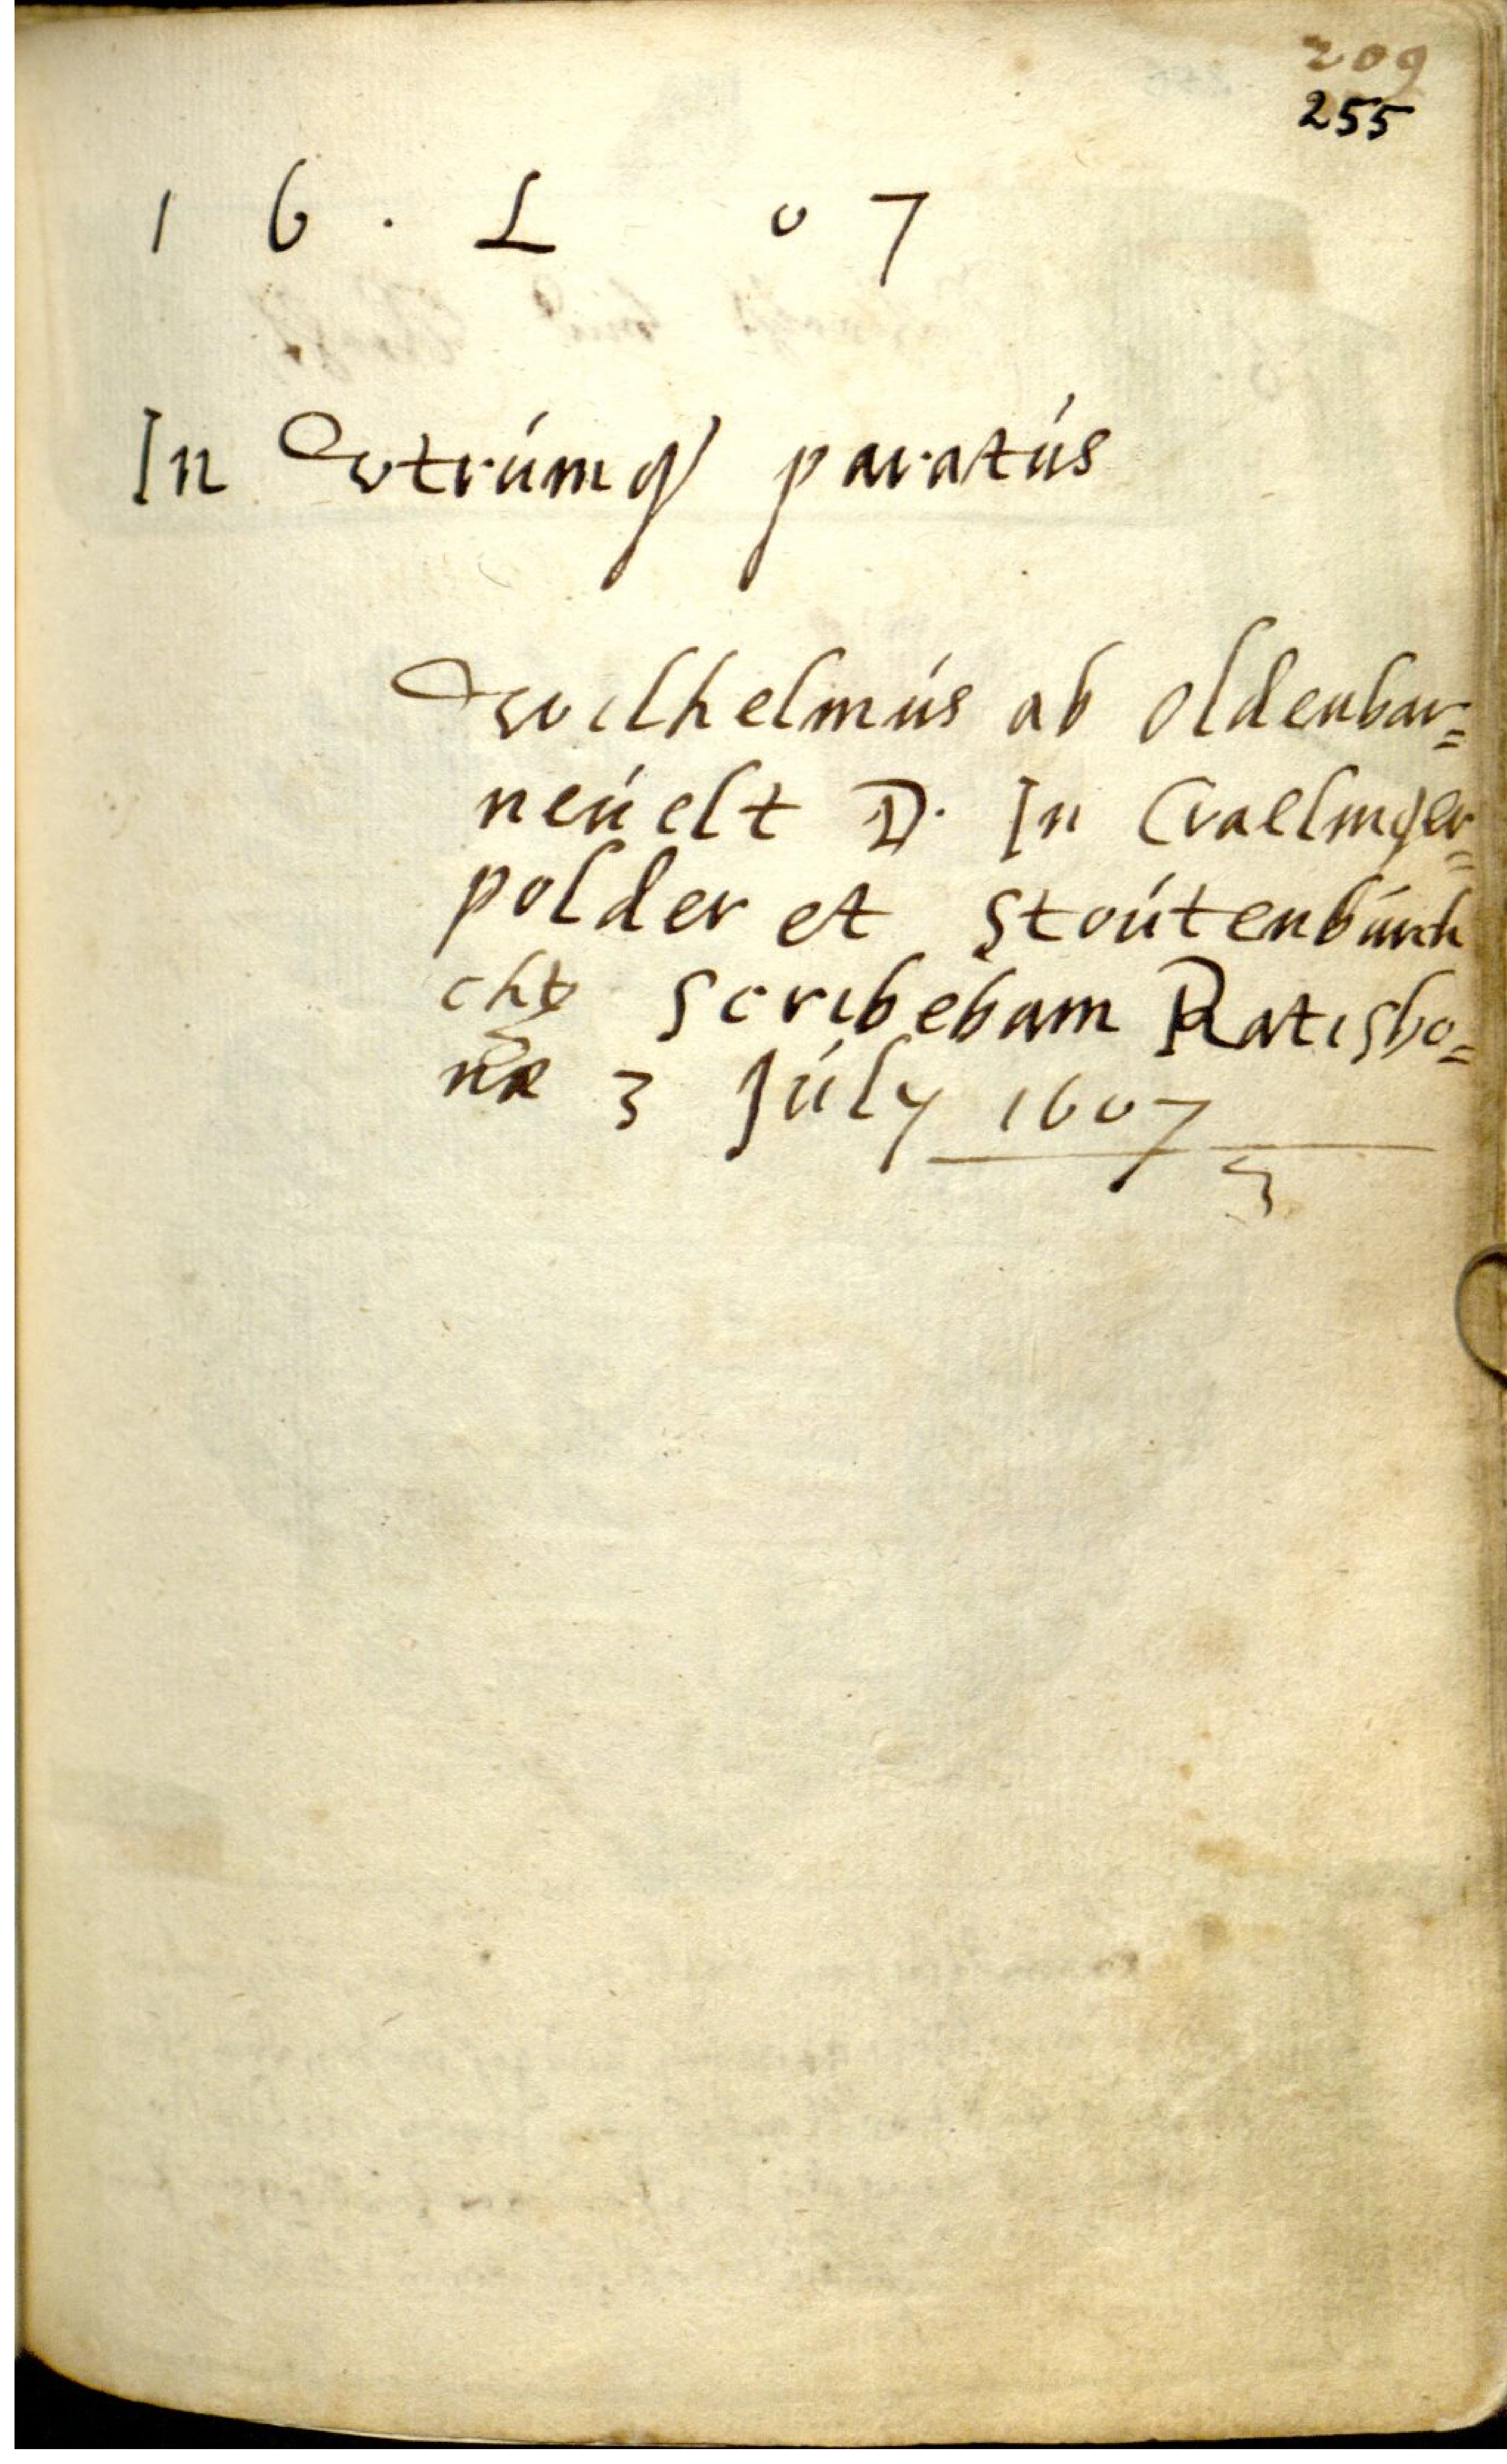 209
255
1 6 . L 0 7
In vtrúmq paratús
Wilhelmús ab oldenbar=
neúelt D. In Craelinger=
polder et Stoútenbúrch
Scribebam Ratisbo=
næ 3 Júly 1607